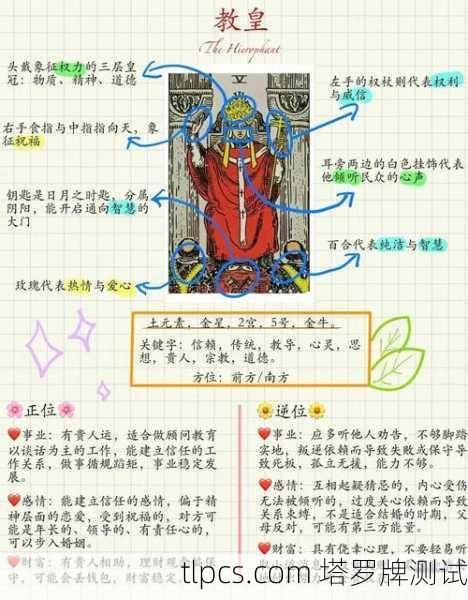 教皇
The Hierophant
头戴象征权力的三层皇
冠：物质、精神、道德
右手食指与中指指向天，象
征祝福
钥匙是日月之时匙，分属
阴阳，能开启通向智慧的
大门
玫瑰代表热情与爱心
左手的权杖则代表权利
与威信
耳旁两边的白色挂饰代表
他倾听民众的心声
百合代表纯洁与智慧
V
土元素，金星，2宫，5号，金牛。
关键字：信赖，传统，教导，心灵，思
想，贵人，宗教，道德。
方位：前方/南方
🌸正位🌸
❤️事业：有贵人运，适合做顾问教育
以谈话为主的工作，能建立信任的工
作关系，做事循规蹈矩，事业稳定发
展。
❤️感情：能建立信任的感情，偏于精
神层面的恋爱，受到祝福的，对方可
能是年长的、领导的、有责任心的，
可以步入婚姻。
❤️财富：有贵人相助，理财观念偏保
守，可能会丢钱包，财富稳定。
🌼逆位🌼
❤️事业：应多听他人劝告，不够脚踏
实地，叛逆依赖而导致失败或保守导
致死板，孤立无援，能力不够。
❤️感情：互相起疑猜忌的，内心受伤
无法被倾听的，过度关心依赖而导致
关系束缚，不是适合结婚的时期，父
母反对，可能有第三方能量。
❤️财富：具有侥幸心理，不要轻易听
ttpcs.com 塔罗牌测试